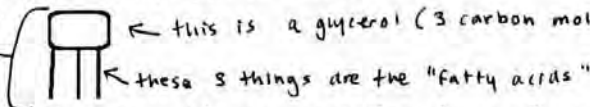 ← this is a glycerol (3 carbon mol
← these 3 things are the "fatty acids"